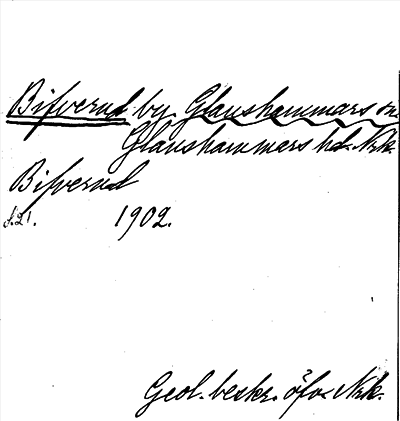 Bifverud by Glanshammars sn.
Glanshammars hd. Nrk.
Bifverud
s. 21. 1902.
Geol. beskr. öfv. Nrk.